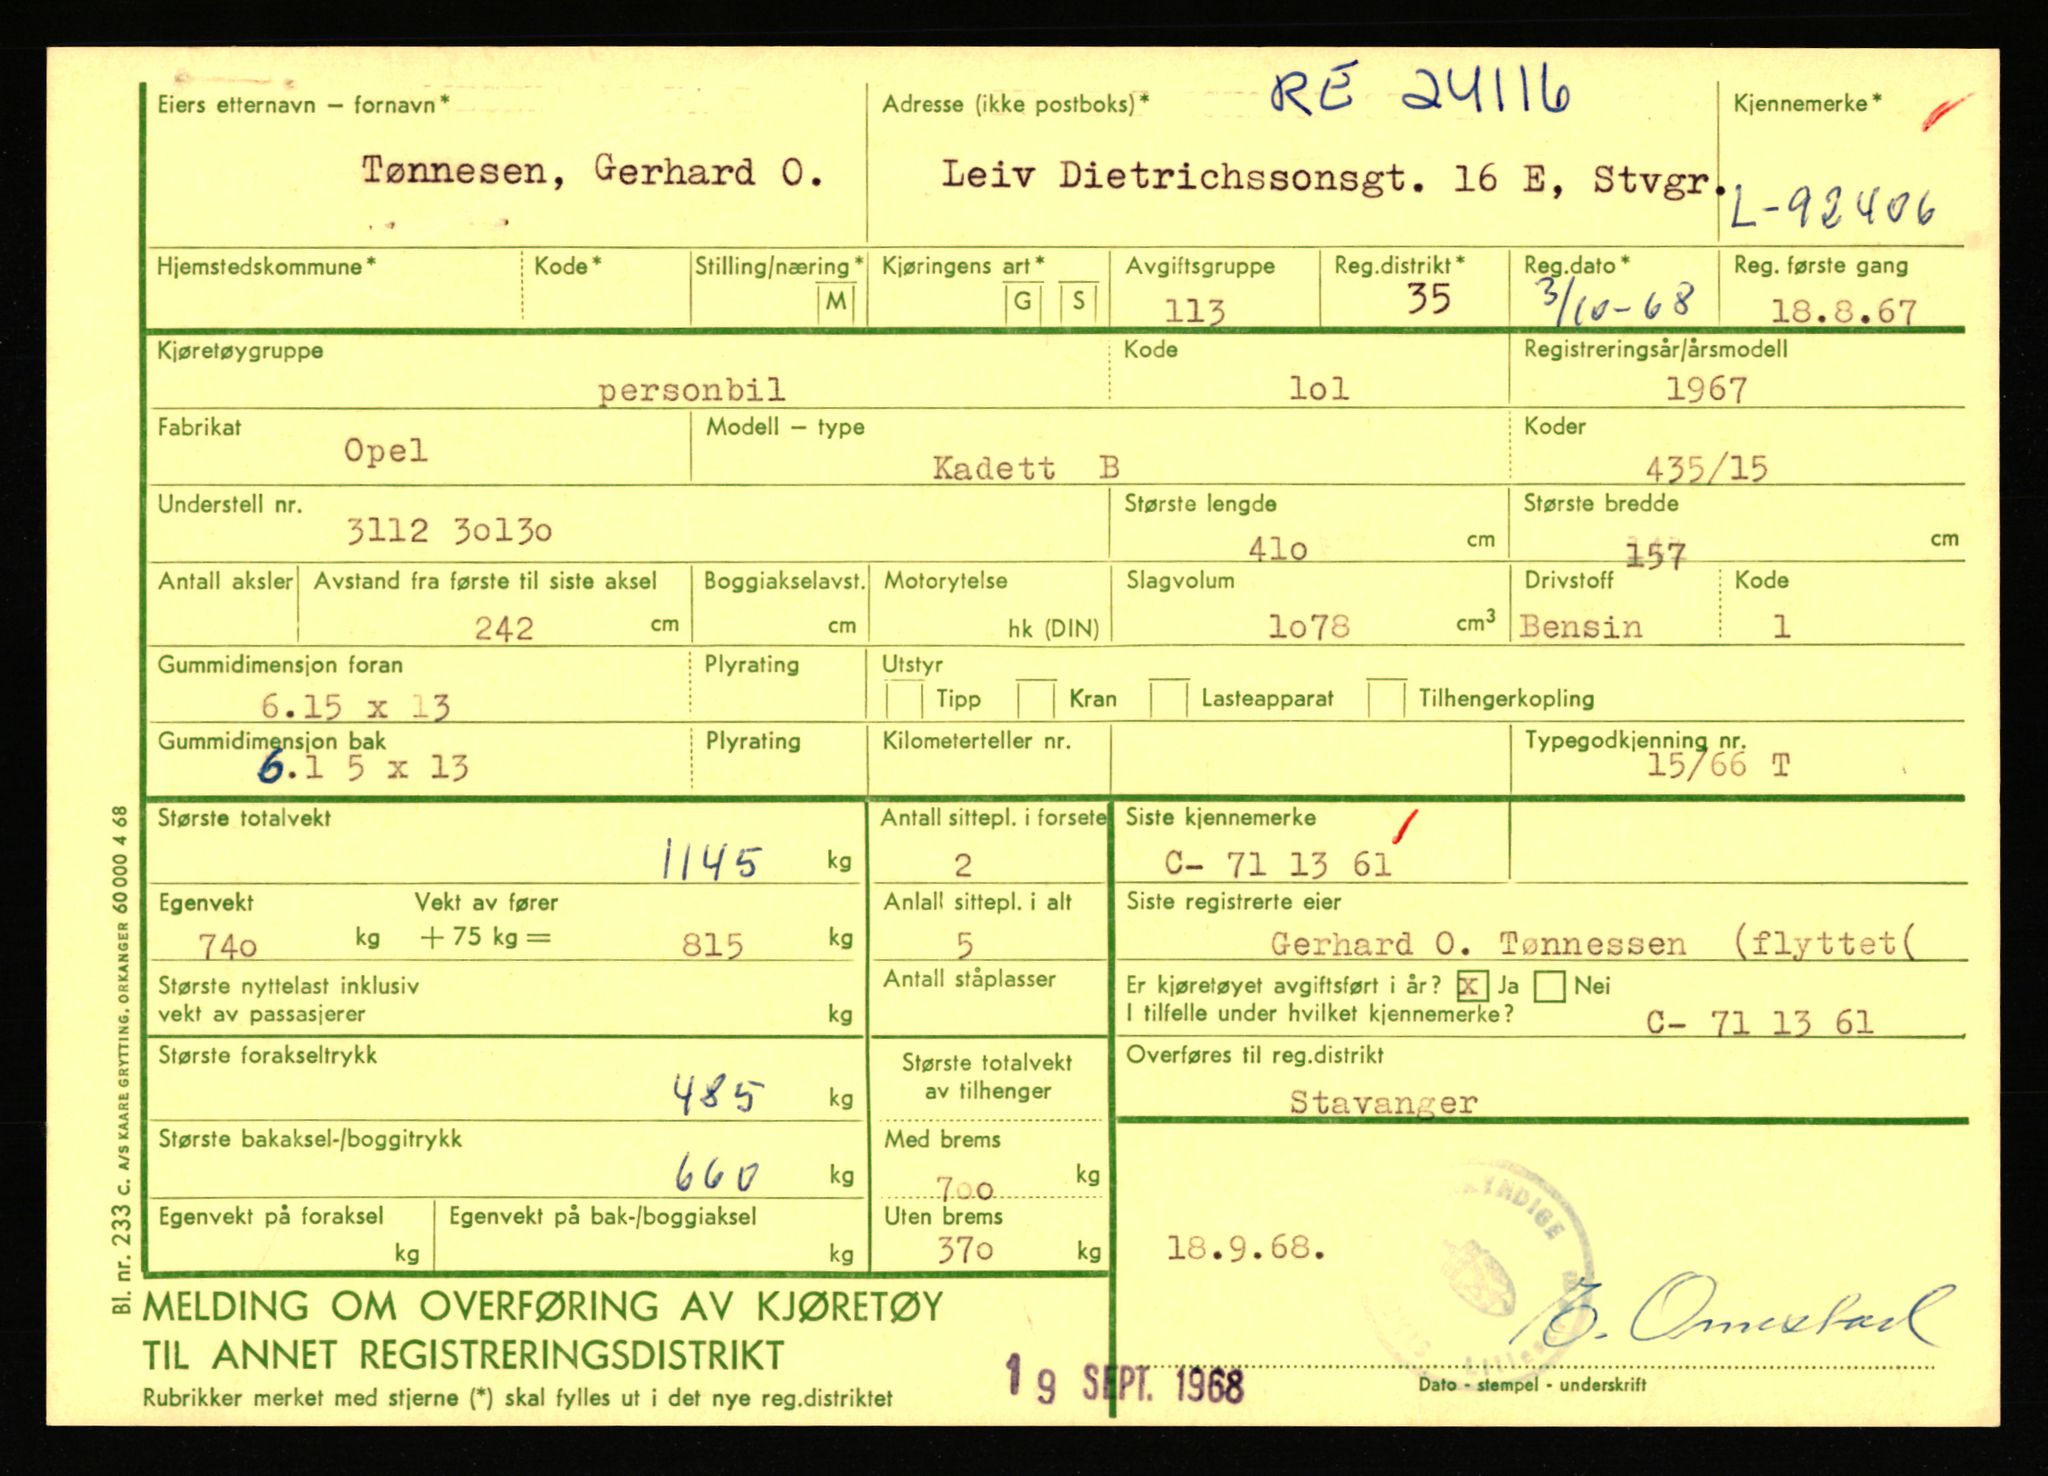 RE 24116
Eiers etternavn – fornavn* Adresse (ikke postboks)* Kjennemerke*
Tønnesen, Gerhard O. Leiv Dietrichssonsgt. 16 E, Stvgr. L-92406
Hjemstedskommune* Kode* Stilling/næring* M Kjøringens art* G S Avgiftsgruppe Reg.distrikt* Reg.dato* Reg. første gang
113 35 3/10-68 18.8.67
Kjøretøygruppe Kode Registreringsår/årsmodell
personbil lol 1967
Fabrikat Modell – type Koder
Opel Kadett B 435/15
Understell nr. Største lengde Største bredde
3112 3o13o 41o cm 157 cm
Antall aksler Avstand fra første til siste aksel Boggiakselavst. Motorytelse Slagvolum Drivstoff Kode
242 cm cm hk (DIN) 1o78 cm³ Bensin 1
Gummidimensjon foran Plyrating Utstyr
6.15 x 13 Tipp Kran Lasteapparat Tilhengerkopling
Gummidimensjon bak Plyrating Kilometerteller nr. Typegodkjenning nr.
6.1 5 x 13 15/66 T
Største totalvekt Antall sittepl. i forsete Siste kjennemerke
1145 kg 2 C- 71 13 61
Egenvekt Vekt av fører Anlall sittepl. i alt Siste registrerte eier
74o kg + 75 kg = 815 kg 5 Gerhard O. Tønnessen (flyttet(
Største nyttelast inklusiv Antall ståplasser Er kjøretøyet avgiftsført i år? x Ja Nei
vekt av passasjerer kg I tilfelle under hvilket kjennemerke? C- 71 13 61
Største forakseltrykk Største totalvekt Overføres til reg.distrikt
485 kg av tilhenger Stavanger
Største bakaksel-/boggitrykk Med brems
660 kg 7oo kg
Egenvekt på foraksel Egenvekt på bak-/boggiaksel Uten brems
kg kg 37o kg 18.9.68.
E. Omestad
MELDING OM OVERFØRING AV KJØRETØY
TIL ANNET REGISTRERINGSDISTRIKT
19 SEPT. 1968 Dato - stempel - underskrift
Rubrikker merket med stjerne (*) skal fylles ut i det nye reg.distriktet
Bl. nr. 233 C. A/S KAARE GRYTTING, ORKANGER 60 000 4 68